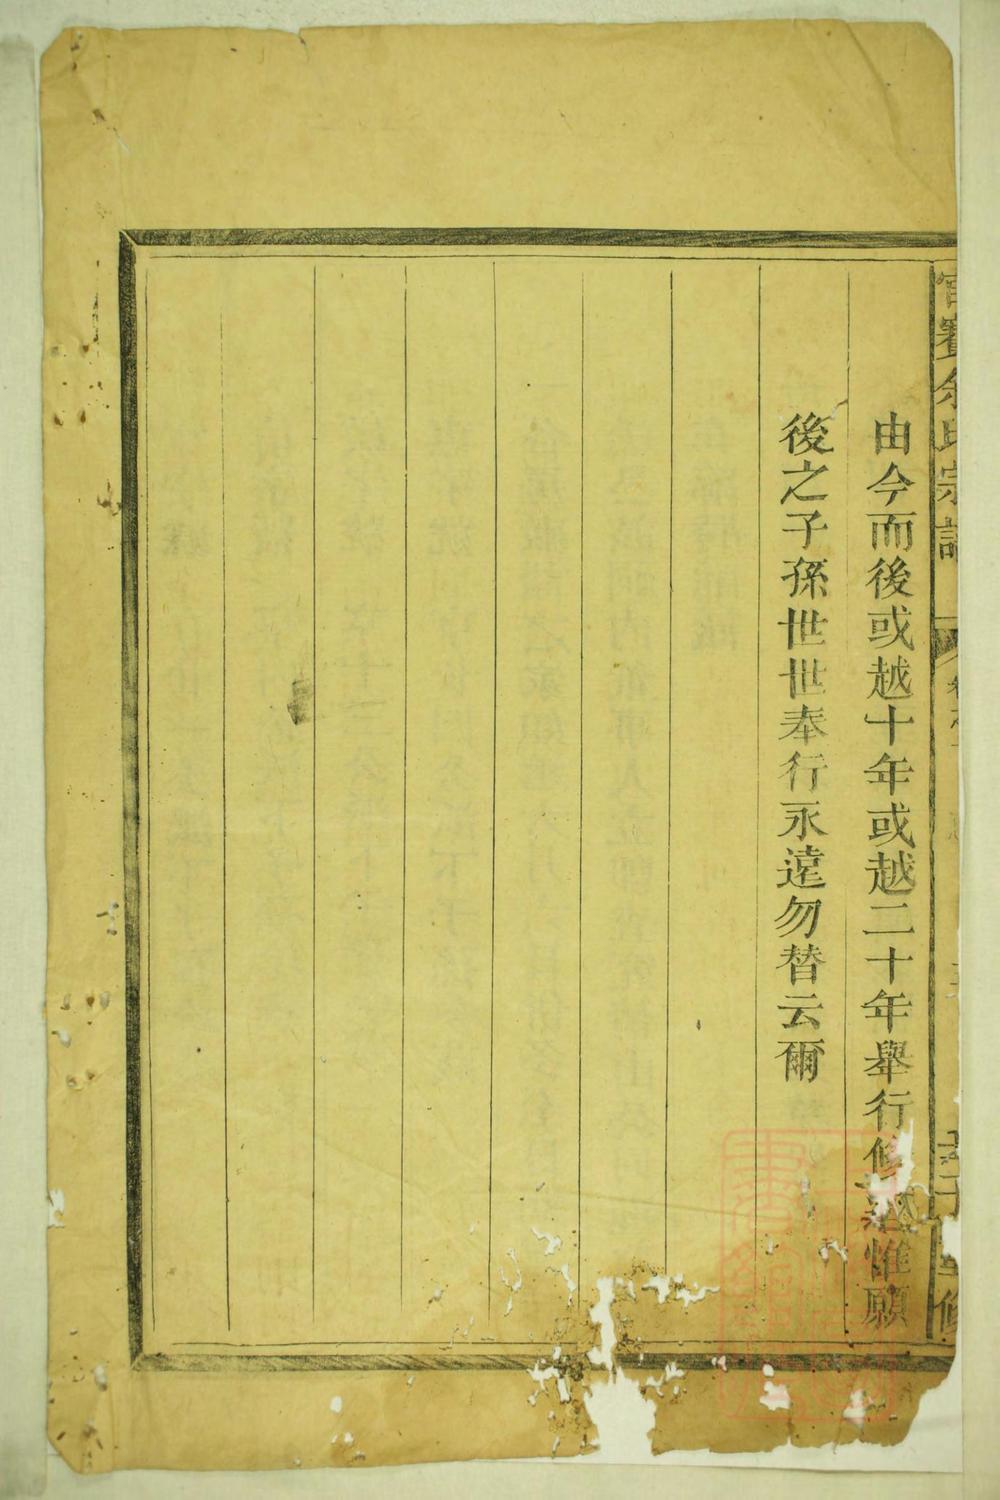 余氏宗譜
由今而後或越十年或越二十年舉行修惟願
後之子孫世世奉行永遠勿替云爾